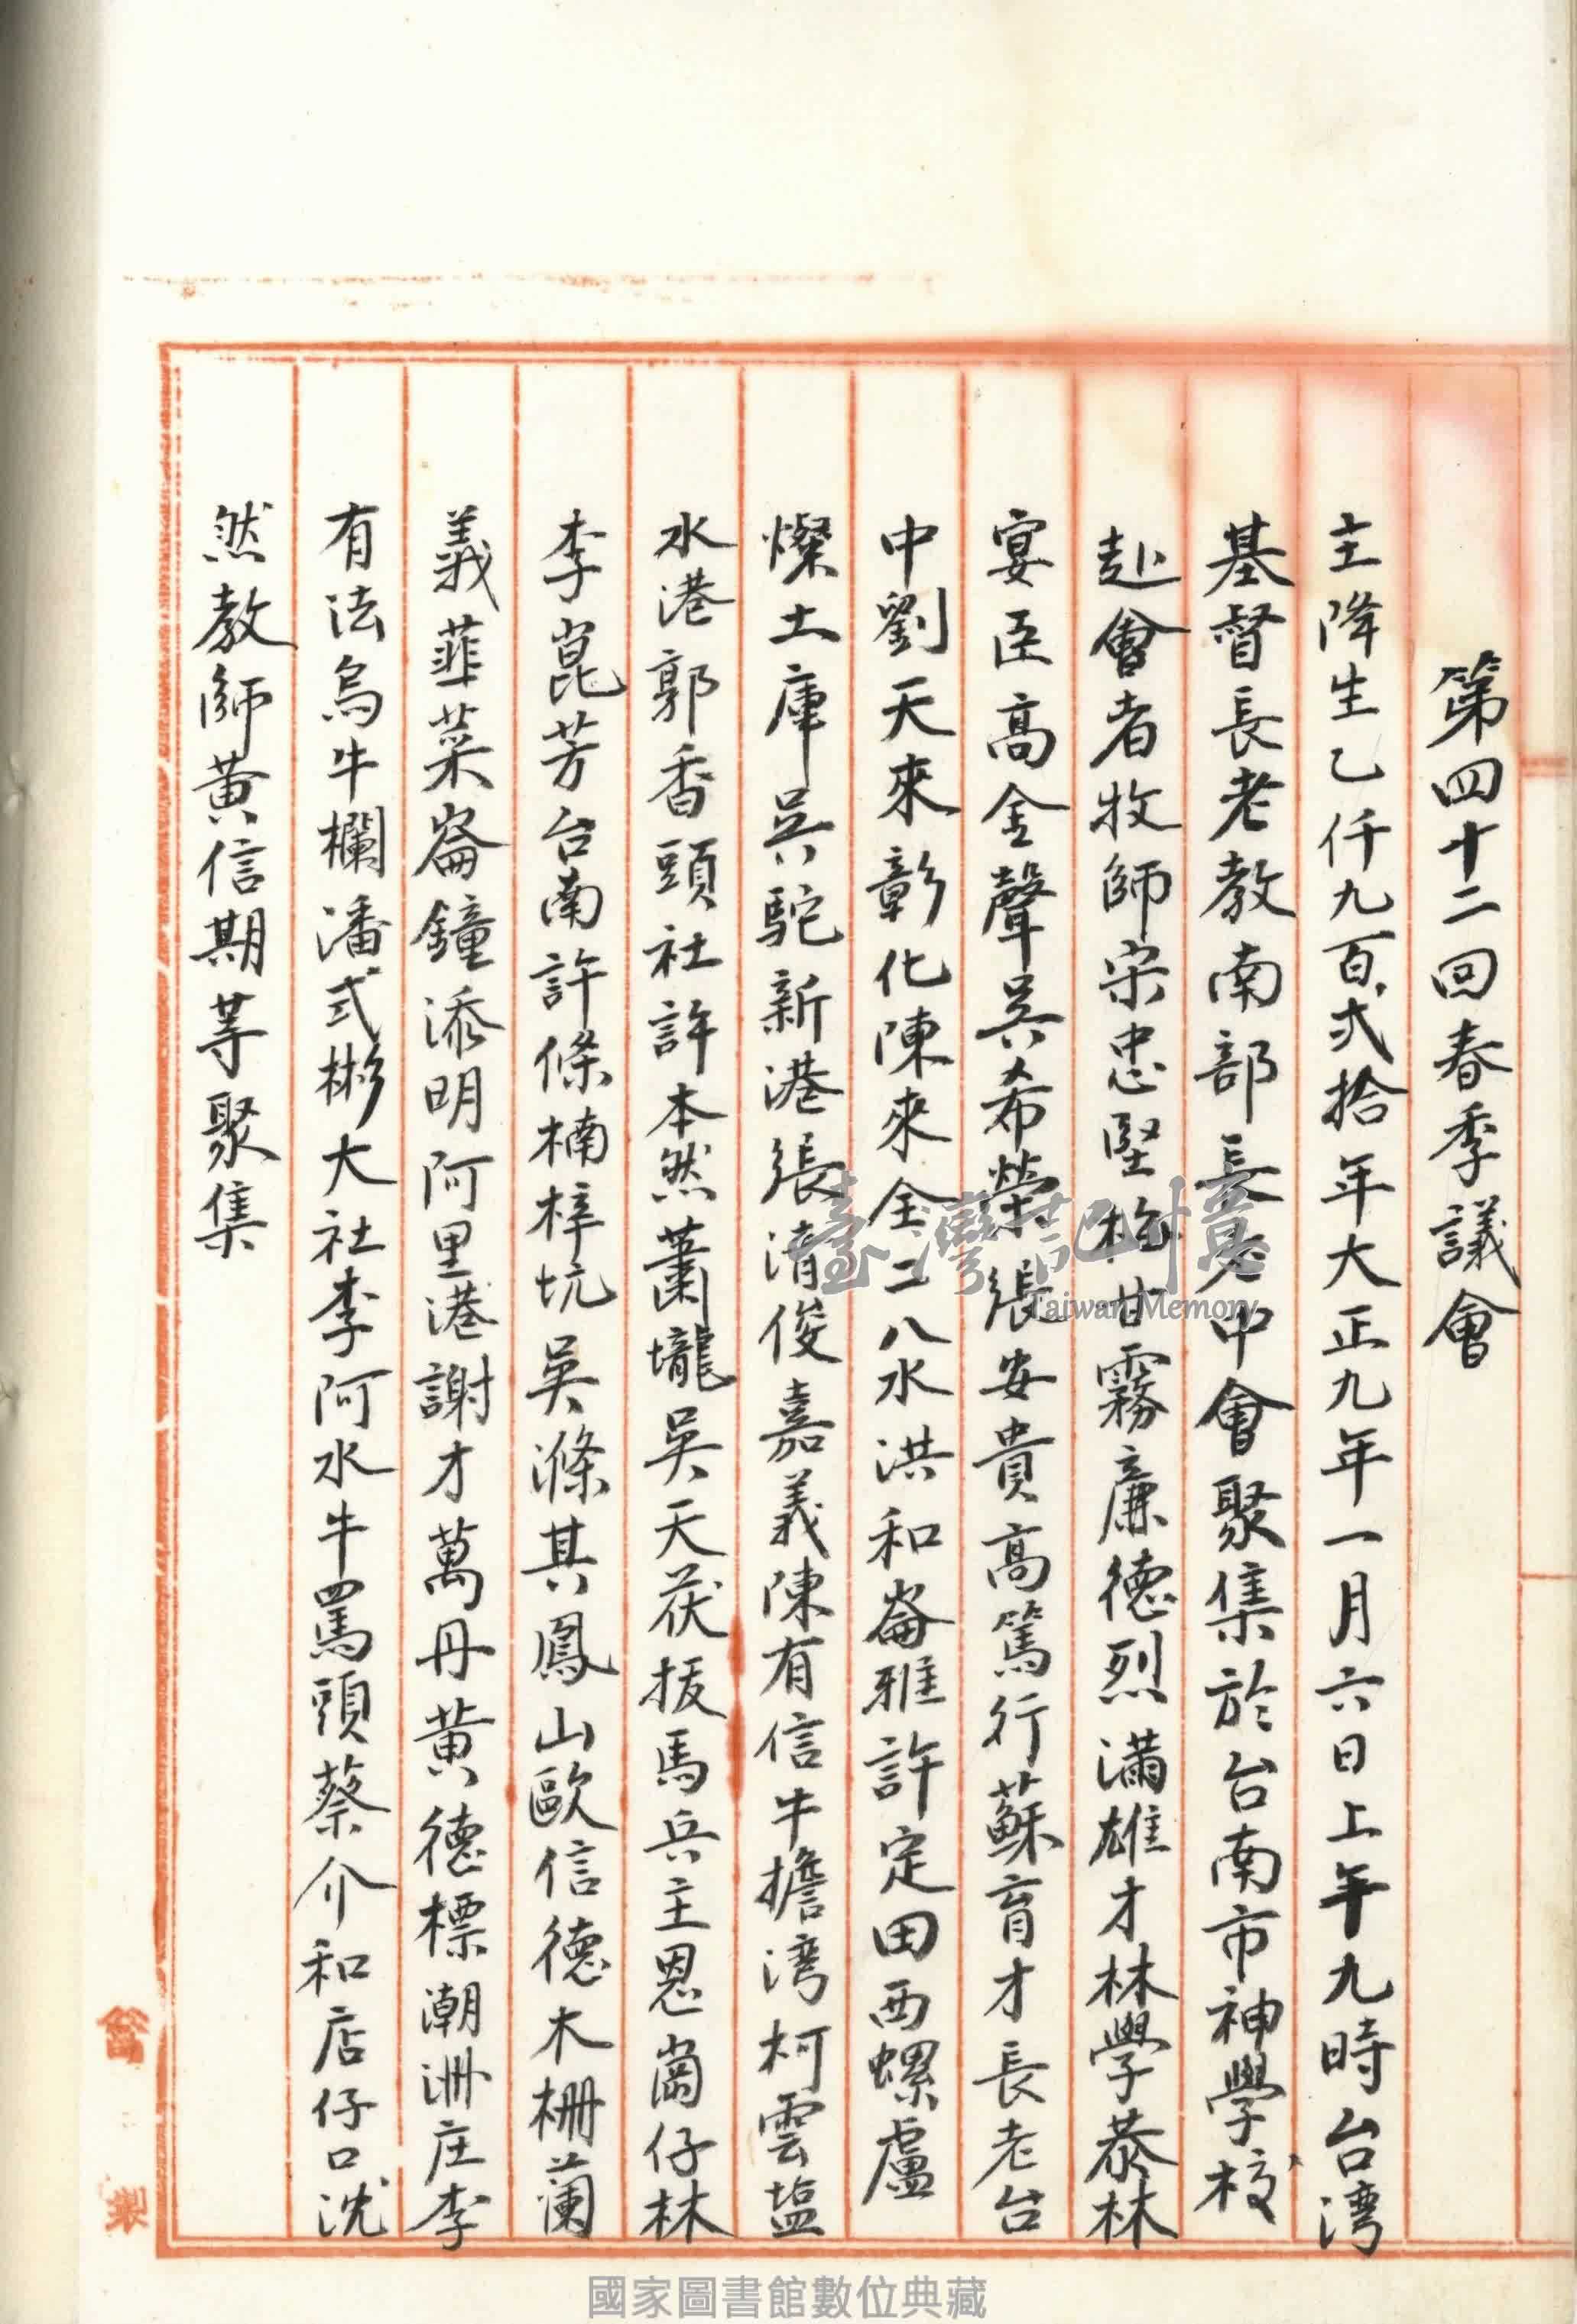 第四十二回春季議會
主降生乙仟九百弍拾年大正九年一月六日上午九時台湾
基督長老教南部長老中會聚集於台南市神學校
赴會者牧師宋忠堅梅甘霧廉德烈滿雄才林學恭林
宴臣高金聲吳希榮張安貴高篤行蘇育才長老台
中劉天來彰化陳來全二八水洪和崙雅許定田西螺盧
燦土庫吳駝新港張清俊嘉義陳有信牛擔湾柯雲塩
水港郭香頭社許本然蕭壠吳天茯拔馬兵主恩崗仔林
李崑芳台南許條楠梓坑吳滌其鳳山歐信德木柵蘭
義韮菜崙鐘添明阿里港謝才萬丹黄德標潮洲庄李
有法烏牛欄潘弍彬大社李阿水牛罵頭蔡介和店仔口沈
然教師黄信期等聚集
臺灣記憶
Taiwan Memory
製
國家圖書館數位典藏